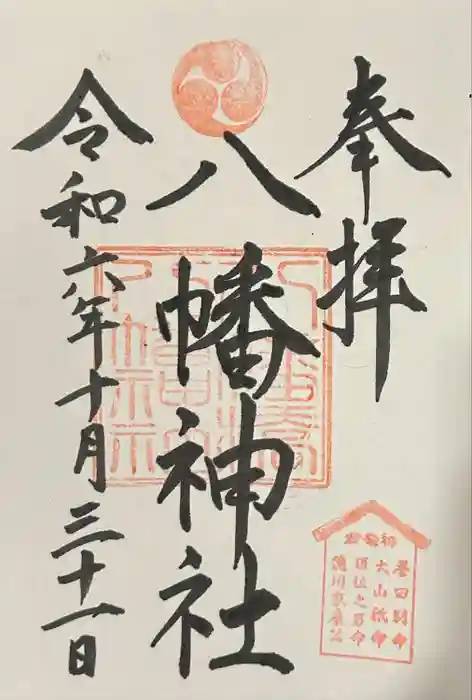 奉拝
八幡神社
令和六年十月三十一日
誉田別命
大山祇命